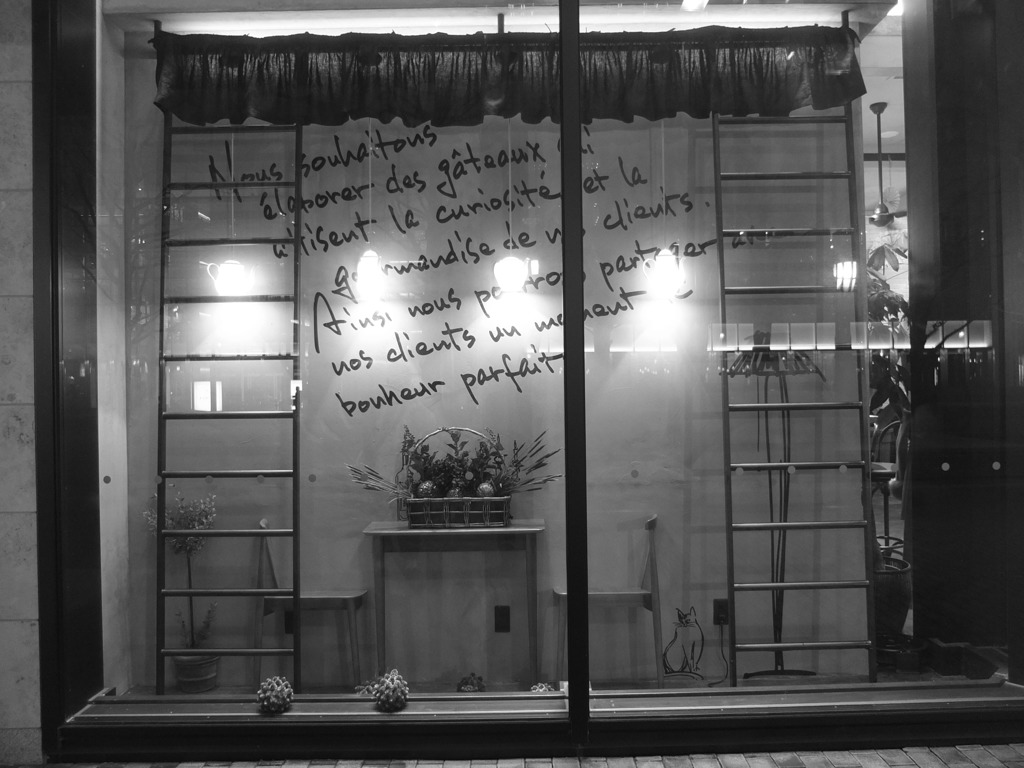 Nous souhaitons
élaborer des gâteaux qui
utilisent la curiosité et la
gourmandise de nos clients.
Ainsi nous pourrons partager avec
nos clients un moment de
bonheur parfait